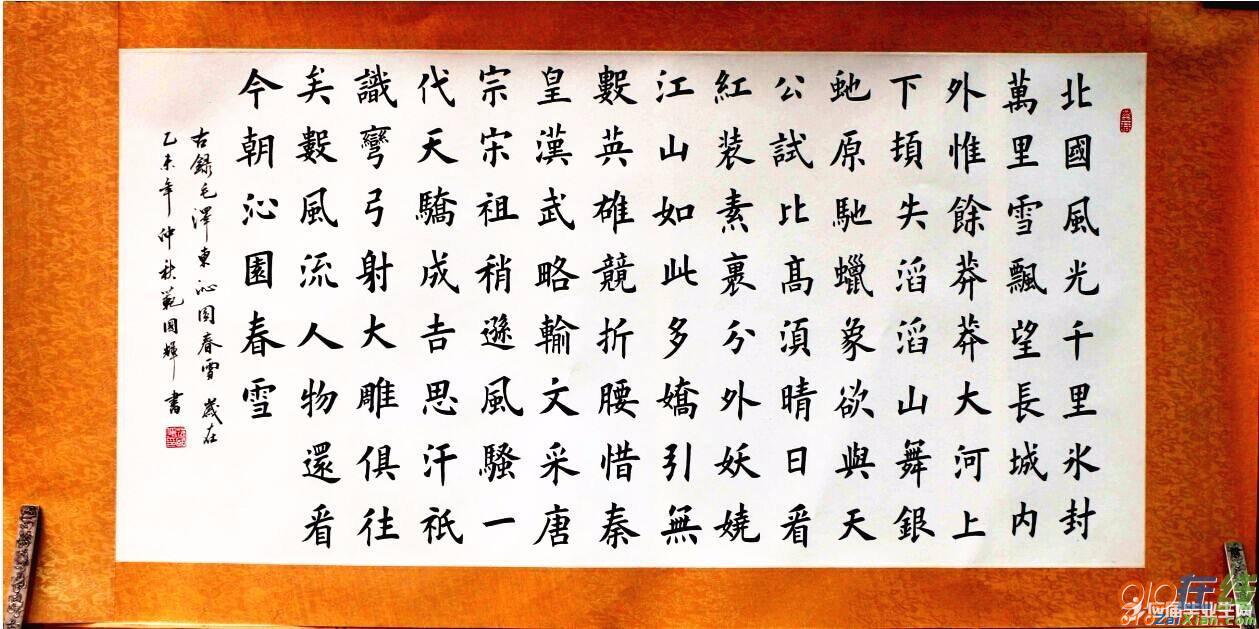 北國風光千里氷封
萬里雪飄望長城内
外惟餘莽莽大河上
下頓失滔滔山舞銀
虵原馳蠟象欲與天
公試比髙須晴日看
紅装素裹分外妖嬈
江山如此多嬌引無
數英雄競折腰惜秦
皇漢武略輸文采唐
宗宋祖稍遜風騷一
代天驕成吉思汗祇
識彎弓射大雕俱往
矣數風流人物還看
今朝沁園春雪
右錄毛澤東沁園春雪歲在
乙未年仲秋範國輝書
在线
应届毕业生网
ZaiXian.com